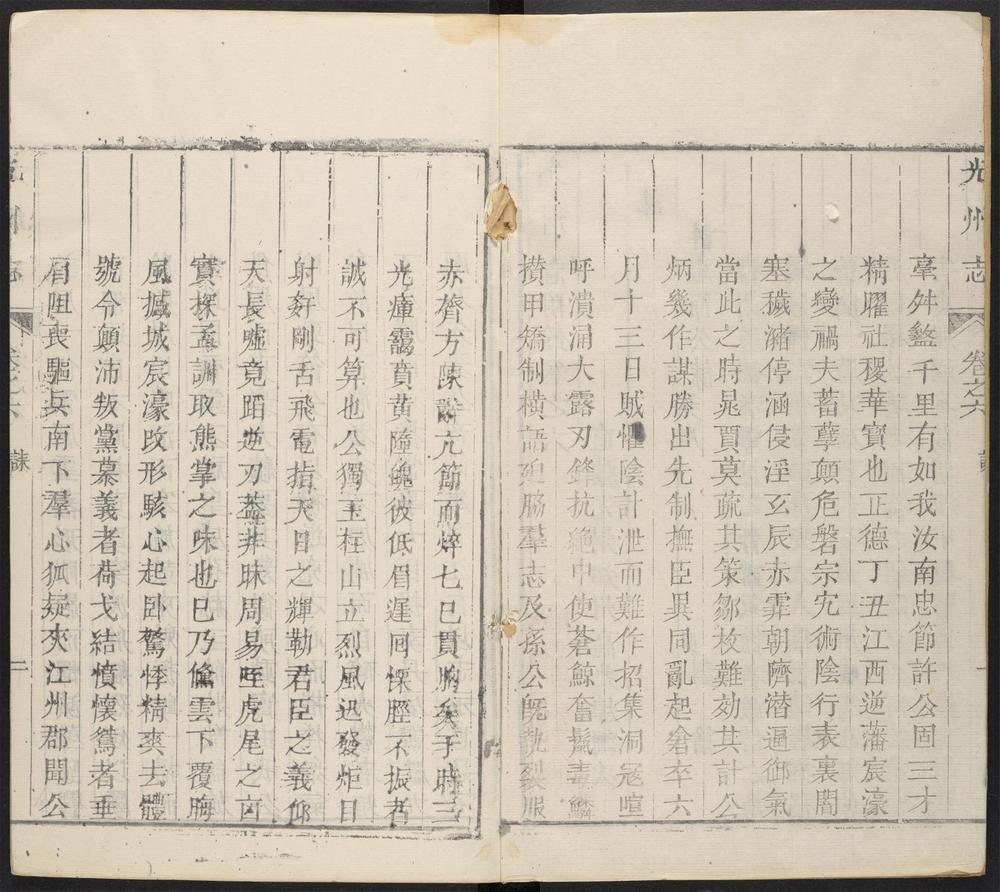 光州志 卷之六
毫舛盭千里有如我汝南忠節許公固三才
精曜社稷華寶也正德丁丑江西逆藩宸濠
之變禍夫蓄孽顛危磐宗宄術陰行表裏閤
塞穢瀦停涵侵淫玄辰赤霏朝隮潛逼御氣
當此之時晁賈莫疏其策鄒枚難効其計公
炳幾作謀勝出先制撫臣異同亂起倉卒六
月十三日賊懼陰計泄而難作招集洞寇喧
呼潰涌大露刃鋒抗絶中使蒼鯨奮鬣毒鱗
攅甲矯制横語廹脇羣志及孫公旣執裂服
赤膺方陳辭亢節而焠匕已貫胸矣于時三
光瘇靄賁黄隆魄彼低眉遲囘慄脛不振者
誠不可算也公獨玉柱山立烈風迅發炬目
射奸剛舌飛電指天日之輝勒君臣之義仰
天長嘘竟蹈逆刃葢非昧周易咥虎尾之凶
實探孟訓取熊掌之味也已乃儵雲下覆晦
風撼城宸濠改形駭心起卧驚悸精爽去體
號令顛沛叛黨慕義者荷戈結憤懷鴆者垂
眉阻喪驅兵南下羣心狐疑夾江州郡聞公
誄 二